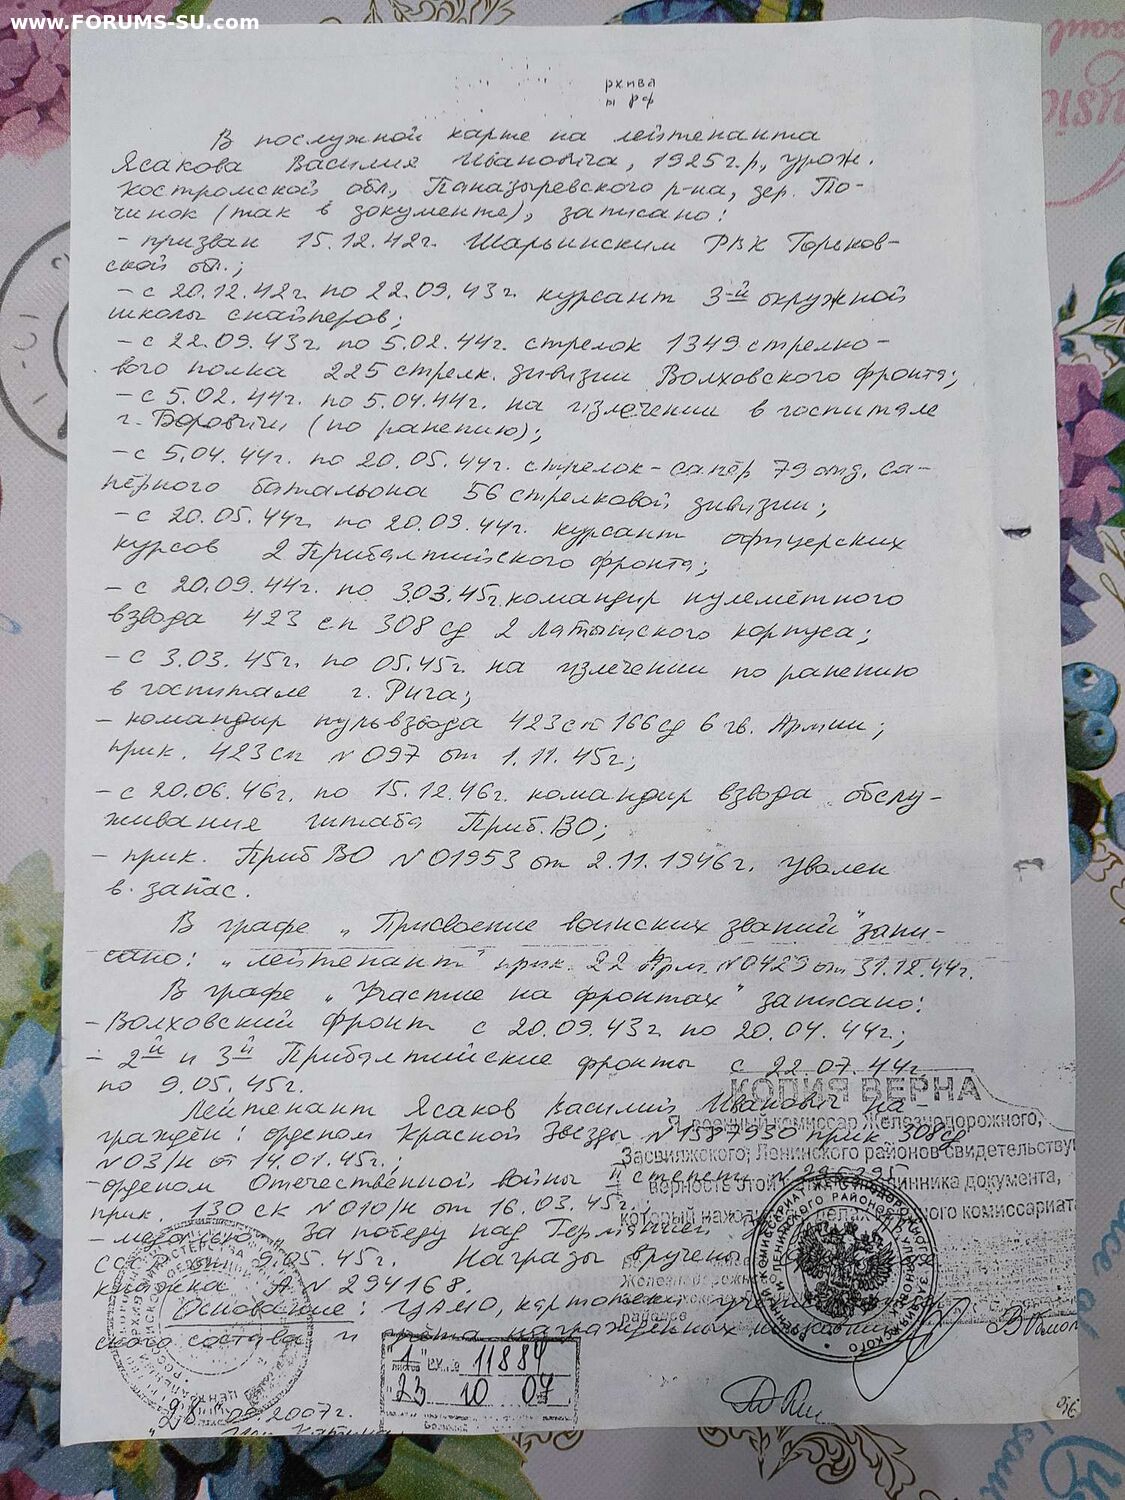 www.FORUMS-SU.com
рхива
ы РФ
В послужной карте на лейтенанта
Ясакова Василия Ивановича, 1925г.р, урож.
Костромской обл, Поназыревского р-на, дер. По-
чинок (так в документе), записано:
- призван 15.12.42г. Шарьинским РВК Горьков-
ской обл.;
- с 20.12.42г. по 22.09.43г. курсант 3-й окружной
школы снайперов;
- с 22.09.43г. по 5.02.44г. стрелок 1349 стрелко-
вого полка 225 стрелк. дивизии Волховского фронта;
- с 5.02.44г. по 5.04.44г. на излечении в госпитале
г. Боровичи (по ранению);
- с 5.04.44г. по 20.05.44г. стрелок-сапёр 79 отд. са-
пёрного батальона 56 стрелковой дивизии;
- с 20.05.44г. по 20.09.44г. курсант офицерских
курсов 2 Прибалтийского фронта;
- с 20.09.44г. по 3.03.45г. командир пулемётного
взвода 423 сп 308 сд 2 Латышского корпуса;
- с 3.03.45г. по 05.45г. на излечении по ранению
в госпитале г. Рига;
- командир пульвзвода 423 сп 166 сд 6 гв. Армии;
прик. 423 сп N 097 от 1.11.45г;
- с 20.06.46г. по 15.12.46г. командир взвода обслу-
живания штаба Приб.ВО;
- прик. ПрибВО N 01953 от 2.11.1946г. уволен
в запас.
В графе „Присвоение воинских званий" запи-
сано: „лейтенант" прик. 22 Арм. N 0429 от 31.12.44г.
В графе „Участие на фронтах" записано:
- Волховский фронт с 20.09.43г. по 20.04.44г.;
- 2й и 3й Прибалтийские фронты с 22.07.44г.
по 9.05.45г.
Лейтенант Ясаков Василий Иванович на-
граждён: орденом Красной Звезды N 1587930 прик 308 сд
N 03/н от 14.01.45г.;
- орденом Отечественной войны II степени N
прик. 130 ск N 010/н от 16.03.45г.;
- медалью „За победу над Германией"
от 9.05.45г. Награды вручены,
книжка А N 294168.
Основание: ЦАМО, картотеки
ского состава и учёта награждённых
КОПИЯ ВЕРНА
Я, военный комиссар Железнодорожного,
Засвияжского, Ленинского районов свидетельствую
верность этой подлинника документа,
который находится в делах военного комиссариата
1 11884
23 10 07
2007г.